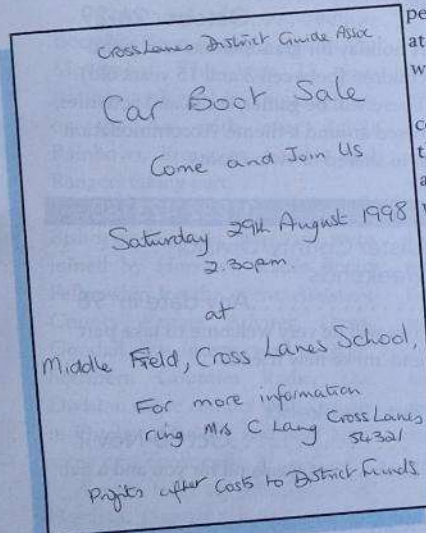 Cross Lanes District Guide Assoc
Car Boot Sale
Come and Join Us
Saturday 29th August 1998
2.30pm.
at
Middle Field, Cross Lanes School,
For more information
ring Mrs C Lang Cross Lanes
54321
Profits after Costs to District Funds